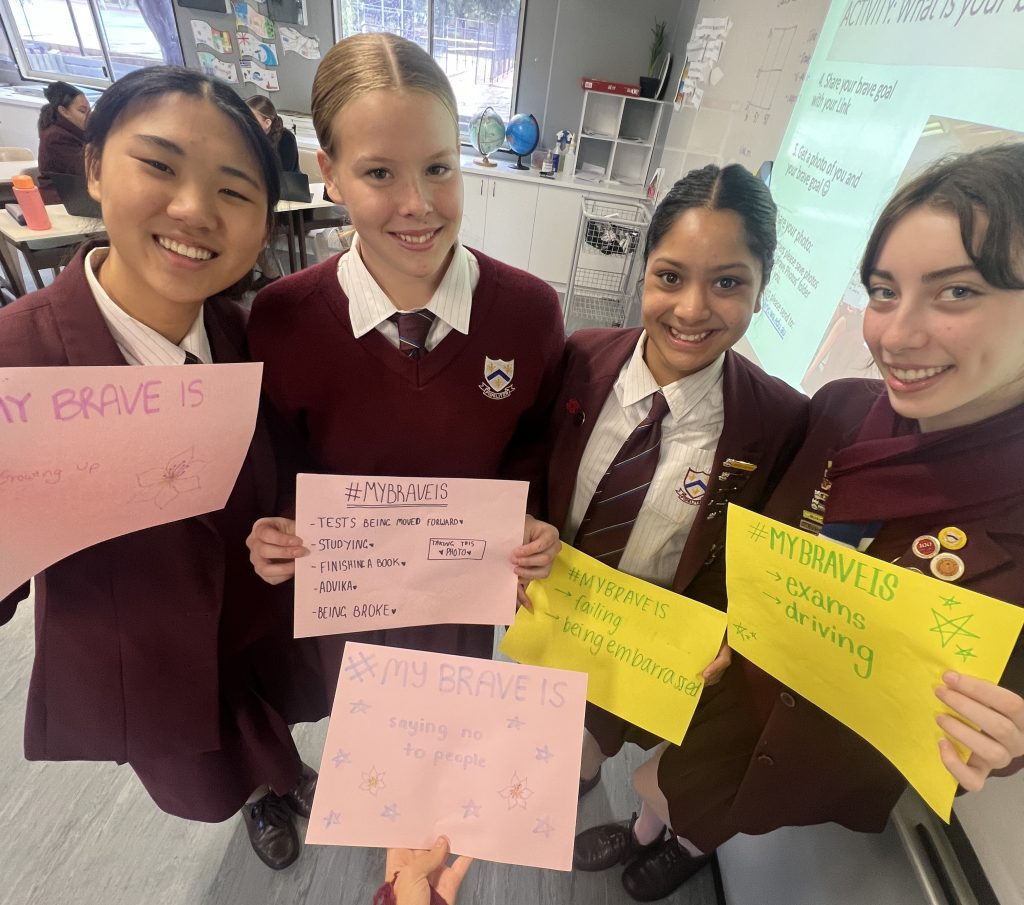 ACTIVITY: What is your b
4. Share your brave goal
with your Link
5. Get a photo of you and
your brave goal ☺
MY BRAVE IS
Growing up
#MYBRAVEIS
- TESTS BEING MOVED FORWARD♥
- STUDYING♥
- FINISHING A BOOK♥
- ADVIKA♥
- BEING BROKE♥
TAKING THIS
♥ PHOTO♥
#MYBRAVEIS
→ failing
→ being embarrassed
#MYBRAVEIS
→ exams
→ driving
#MY BRAVE IS
saying no
to people